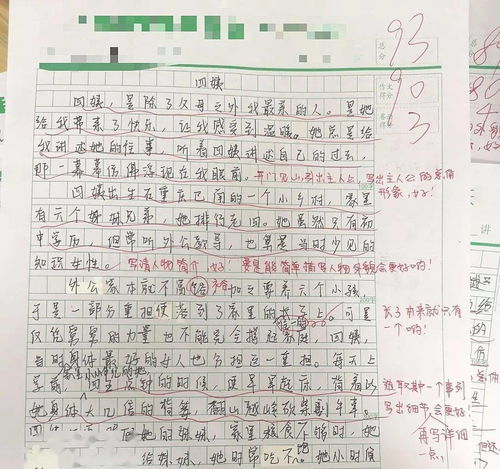 总分 93
作文得分 90
卷面得分 3
四姨
四姨,是除了父母之外我最亲的人。是她
给我带来了快乐,让我感受到温暖。她总是给
我讲述她的往事,听着四姨讲述自己的过去,
那一幕幕仿佛浮现在我眼前。
开门见山,引出主人公,写出主人公的
形象,好!
四姨出生在重庆巴南的一个小乡村,家里
有六个姊妹兄弟,她排行老四。她虽然只有初
中学历,但常听外公教导,也算是当时少见的
知识女性。
写清人物简介,好!要是能简单描写人物外貌会更好哟!
外公家本就不富裕,加之要养六个小孩,
于是一部分重担便落到了家里的长子上。可是
仅凭舅舅的力量也不能完全撑起家庭,四姨,
当时身体最好的女人也分担这一重担。每天上
长子本来就只有
一个哟!
四五点钟的时候,便早早起床,背着比
她身体大几倍的背篓,翻山越岭
选取其中一个事例
写出细节会更好
再写详细
一点。
她的妹妹,家里粮食不够时,她
给妹妹,她时常吃不饱。她小时食